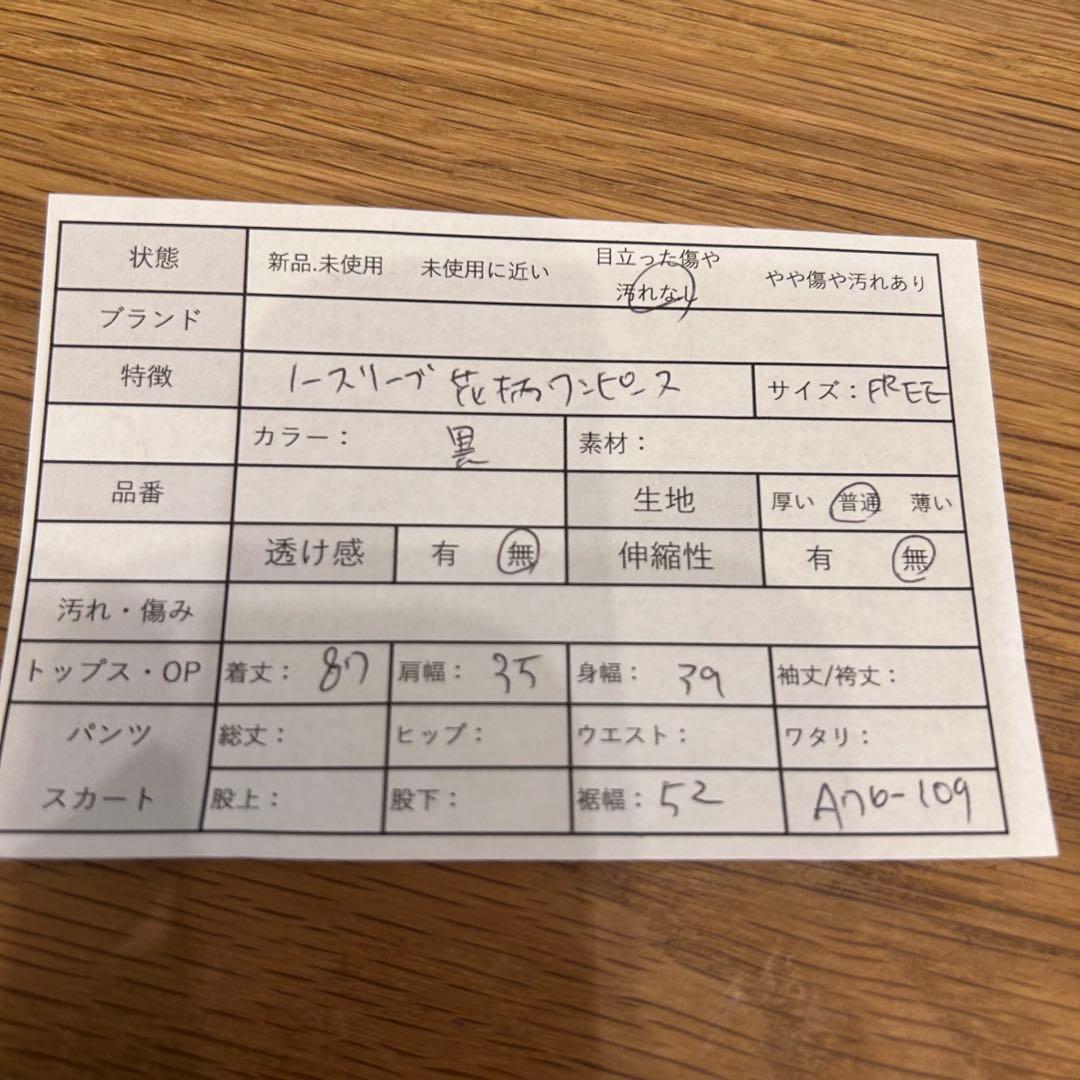 状態 新品.未使用 未使用に近い 目立った傷や汚れなし やや傷や汚れあり
ブランド
特徴 ノースリーブ花柄ワンピース サイズ：FREE
カラー： 黒 素材：
品番 生地 厚い 普通 薄い
透け感 有 無 伸縮性 有 無
汚れ・傷み
トップス・OP 着丈： 87 肩幅： 35 身幅： 39 袖丈/袴丈：
パンツ 総丈： ヒップ： ウエスト： ワタリ：
スカート 股上： 股下： 裾幅： 52 A76-109